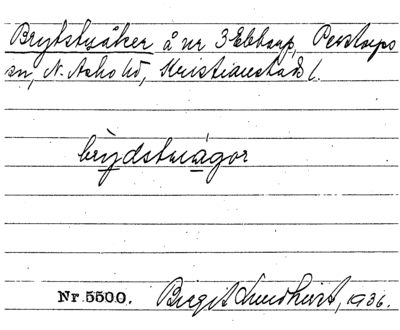 Brytstuåker å nr 3 Ebbarp, Perstorps
sn, N. Åsbo hd, Kristianstads l.
brydstuågor
Nr 5500. Birgit Lundkvist, 1936.